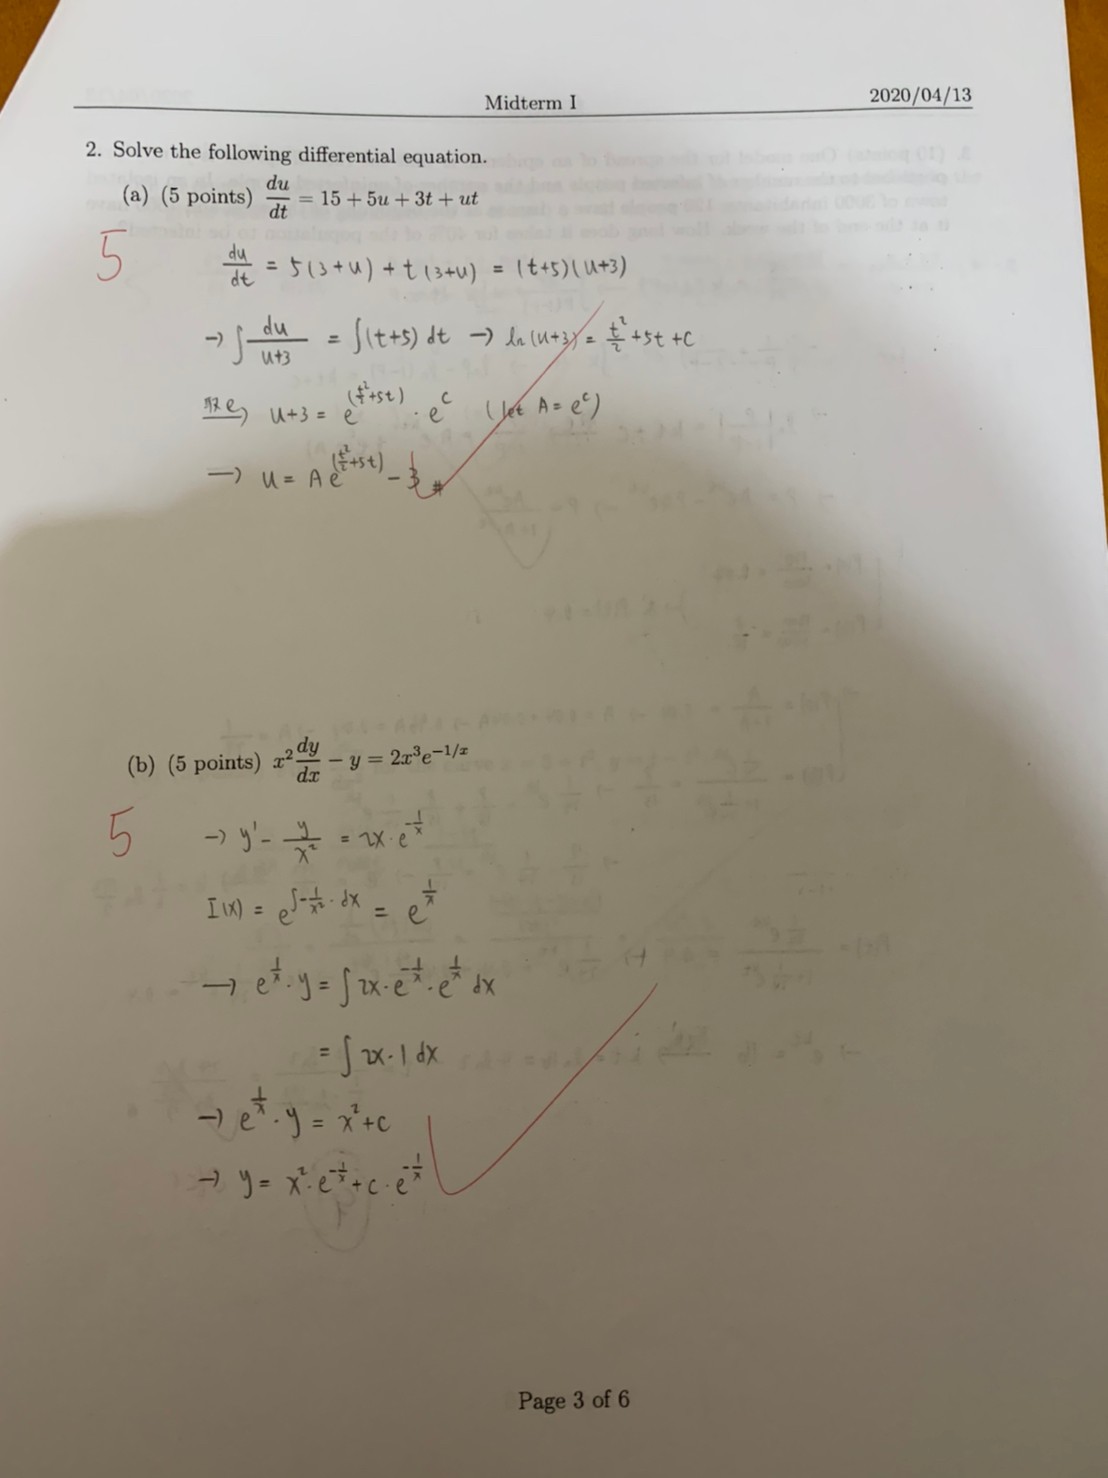 Midterm I
2020/04/13
2. Solve the following differential equation.
(a) (5 points) du/dt = 15 + 5u + 3t + ut
5
du/dt = 5(3+u) + t(3+u) = (t+5)(u+3)
→ ∫ du/(u+3) = ∫(t+5) dt → ln(u+3) = t²/2 + 5t + C
取e) u+3 = e^(t²/2+5t) · e^C (let A = e^C)
→ u = A e^(t²/2+5t) - 3 #
(b) (5 points) x² dy/dx − y = 2x³e^(−1/x)
5
→ y' - y/x² = 2x · e^(-1/x)
I(x) = e^(∫-1/x² · dx) = e^(1/x)
→ e^(1/x) · y = ∫ 2x · e^(-1/x) · e^(1/x) dx
= ∫ 2x · 1 dx
→ e^(1/x) · y = x² + c
→ y = x² · e^(-1/x) + c · e^(-1/x)
Page 3 of 6